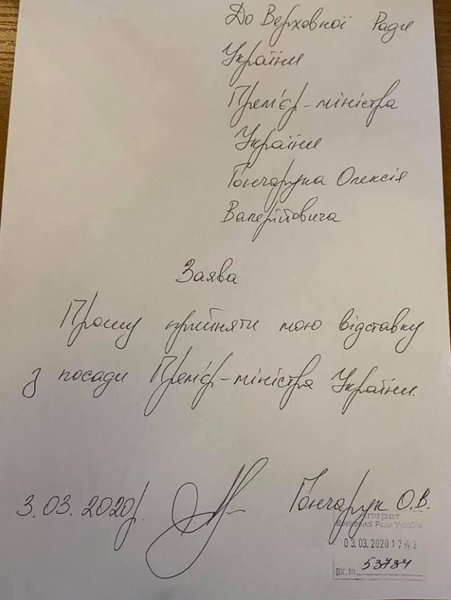 До Верховної Ради
України
Прем'єр-міністра
України
Гончарука Олексія
Валерійовича
Заява
Прошу прийняти мою відставку
з посади Прем'єр-міністра України.
3.03.2020р.
Гончарук О.В.
Апарат
Верховної Ради України
03.03.2020 17:42
ВХ.№ 53737